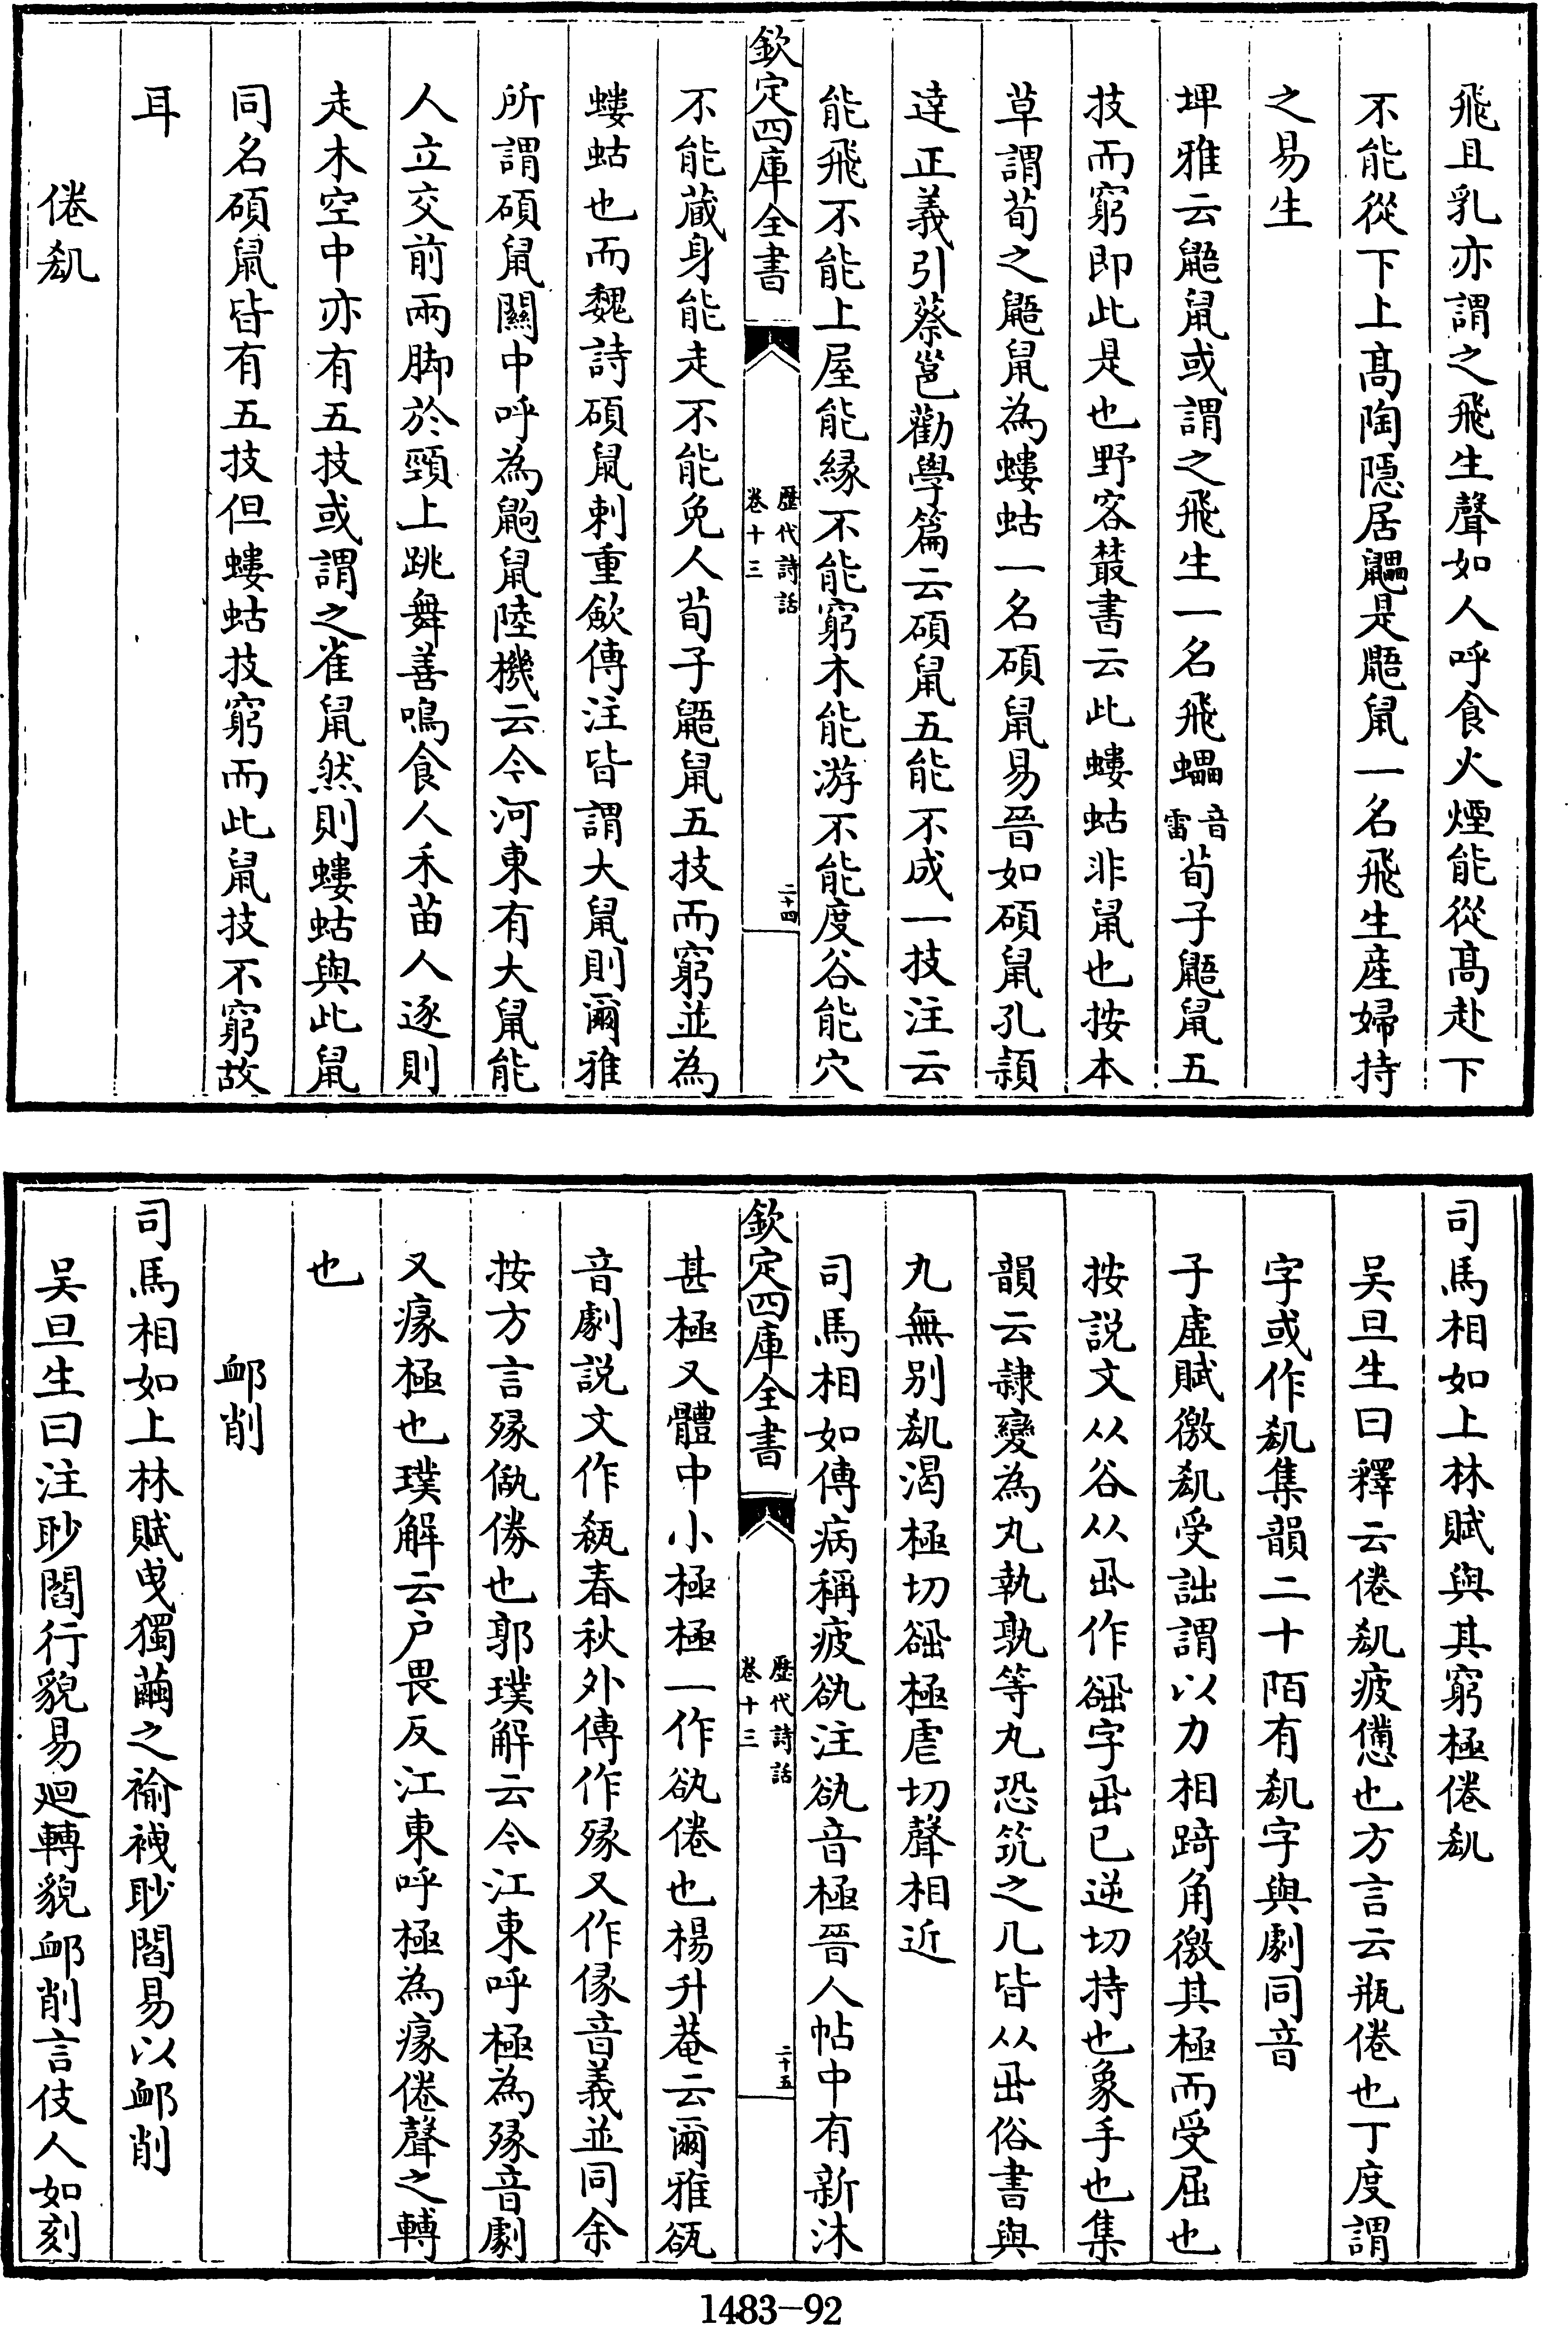 飛且乳亦謂之飛生聲如人呼食火煙能從髙赴下
不能從下上髙陶隱居鼺是鼯鼠一名飛生産婦持
之易生
埤雅云鼯鼠或謂之飛生一名飛蠝音雷荀子鼯鼠五
技而窮即此是也野客叢書云此螻蛄非鼠也按本
草謂荀之鼯鼠為螻蛄一名碩鼠易晉如碩鼠孔穎
逹正義引蔡邕勸學篇云碩鼠五能不成一技注云
能飛不能上屋能縁不能窮木能游不能度谷能穴
欽定四庫全書
歴代詩話
卷十三
二十四
不能蔵身能走不能免人荀子鼯鼠五技而窮並為
螻蛄也而魏詩碩鼠刺重歛傳注皆謂大鼠則爾雅
所謂碩鼠關中呼為鼩鼠陸機云今河東有大鼠能
人立交前兩脚於頸上跳舞善鳴食人禾苗人逐則
走木空中亦有五技或謂之雀鼠然則螻蛄與此鼠
同名碩鼠皆有五技但螻蛄技窮而此鼠技不窮故
耳
倦㕁
司馬相如上林賦與其窮極倦㕁
吴旦生曰釋云倦㕁疲憊也方言云瓶倦也丁度謂
字或作㕁集韻二十陌有㕁字與劇同音
子虚賦徼㕁受詘謂以力相踦角徼其極而受屈也
按説文从谷从丮作𧮫字丮已逆切持也象手也集
韻云隷變為丸執孰等丸恐筑之凡皆从丮俗書與
丸無别㕁渴極切𧮫極虐切聲相近
司馬相如傳病稱疲㕁注㕁音極晉人帖中有新沐
欽定四庫全書
歴代詩話
卷十三
二十五
甚極又體中小極極一作㕁倦也楊升菴云爾雅㼌
音劇説文作㼌春秋外傳作㱆又作𠊩音義並同余
按方言㱆㑃勌也郭璞解云今江東呼極為㱆音劇
又瘃極也璞解云户畏反江東呼極為瘃倦聲之轉
也
䘏削
司馬相如上林賦曵獨繭之褕襏眇閻易以䘏削
吴旦生曰注眇閻行貌易廻轉貌䘏削言伎人如刻
1483-92